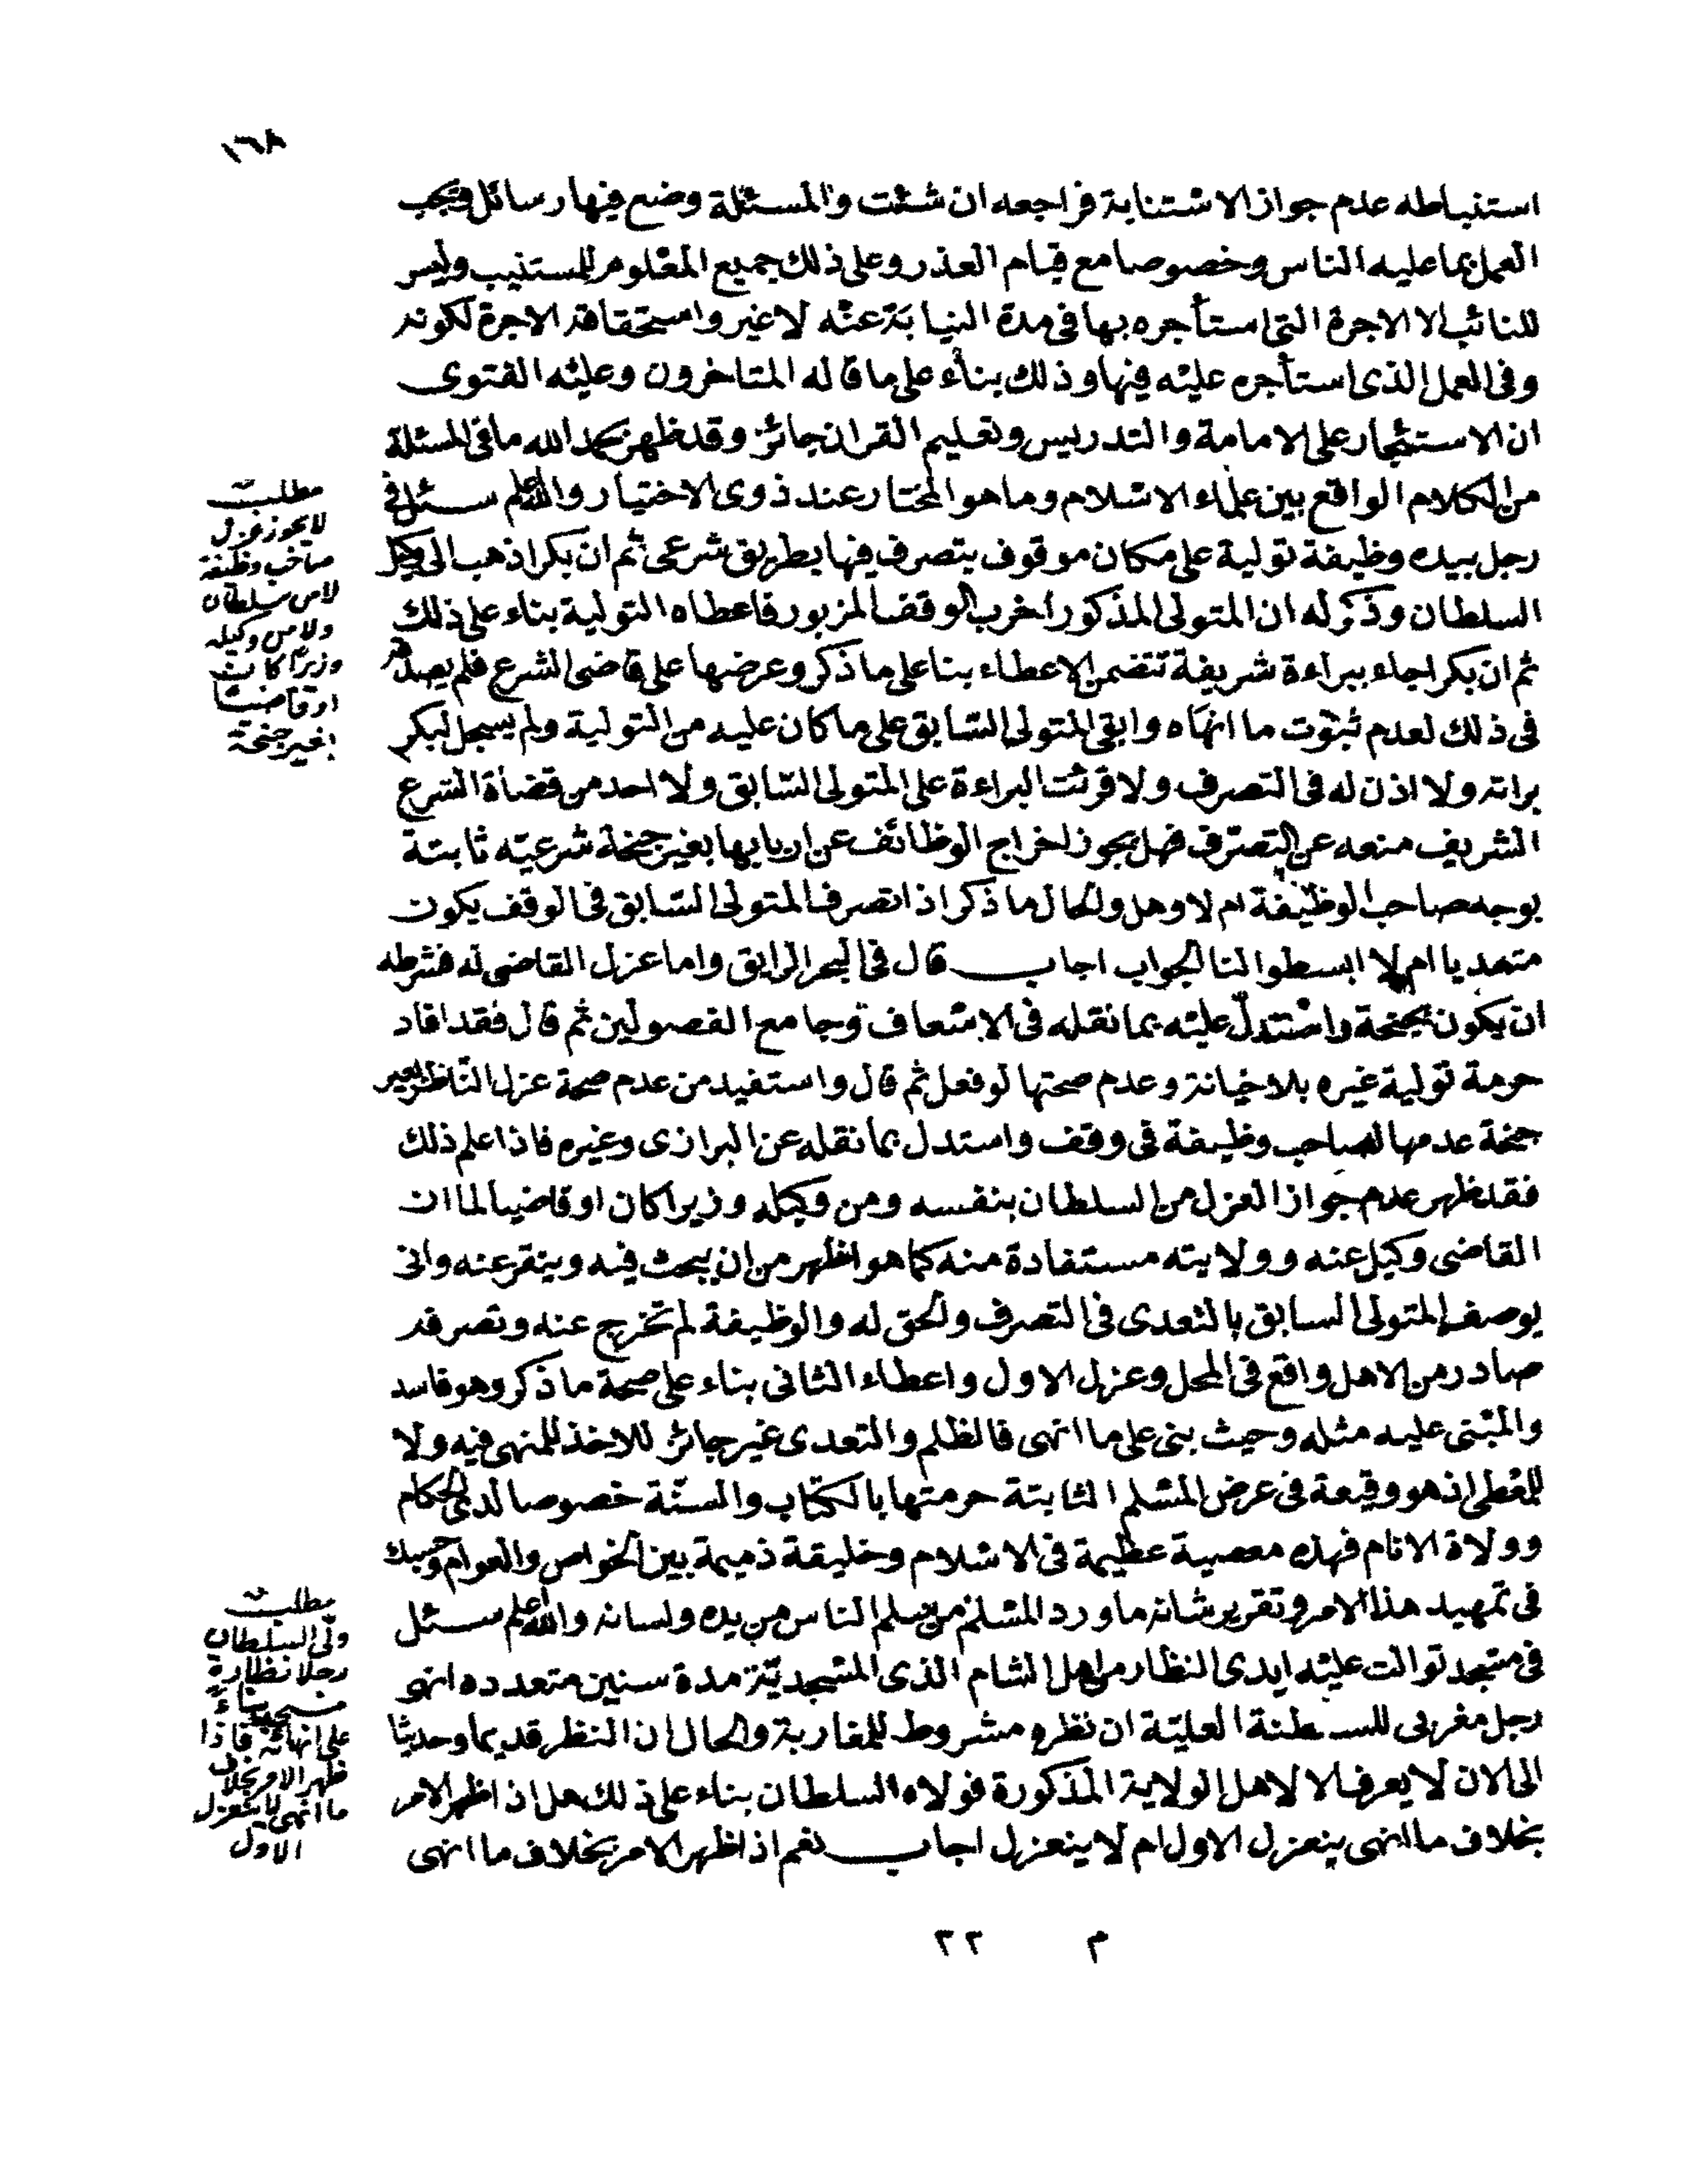 ١٦٨
استنباطه عدم جواز الاستنابة فراجعه ان شئت والمسئلة وضع فيها رسائل ويجب
العمل بما عليه الناس وخصوصا مع قيام العذر وعلى ذلك جميع المعلوم للمستنيب وليس
للنائب الا الاجرة التى استأجره بها فى مدة النيابة عنه لا غير واستحقاقه الاجرة لكونه
وفى العمل الذى استأجره عليه فيها وذلك بناء على ما قاله المتاخرون وعليه الفتوى
ان الاستئجار على الامامة والتدريس وتعليم القران جائز وقد ظهر بحمد الله ما فى المسئلة
من الكلام الواقع بين علماء الاسلام وما هو المختار عند ذوى الاختيار والله اعلم سئل فى
رجل بيده وظيفة تولية على مكان موقوف يتصرف فيها بطريق شرعى ثم ان بكرا ذهب الى وكيل
السلطان وذكر له ان المتولى المذكور اخرب الوقف المزبور فاعطاه التولية بناء على ذلك
ثم ان بكرا جاء ببراءة شريفة تتضمن الاعطاء بنا على ما ذكر وعرضها على قاضى الشرع فلم يصدقه
فى ذلك لعدم ثبوت ما انهاه وابقى المتولى السابق على ما كان عليه من التولية ولم يسجل لبكر
براته ولا اذن له فى التصرف ولا قرئت البراءة على المتولى السابق ولا احد من قضاة الشرع
الشريف منعه عن التصرف فهل يجوز اخراج الوظائف عن اربابها بغير جنحة شرعيه ثابتة
بوجه صاحب الوظيفة ام لا وهل والحال ما ذكر اذا تصرف المتولى السابق فى الوقف يكون
متعديا ام لا ابسطوا لنا الجواب اجاب قال فى البحر الرايق واما عزل القاضى له فشرطه
ان يكون بجنحة واستدل عليه بما نقله فى الاسعاف وجامع الفصولين ثم قال فقد افاد
حرمة تولية غيره بلا خيانة وعدم صحتها لو فعل ثم قال واستفيد من عدم صحة عزل الناظر بغير
جنحة عدمها لصاحب وظيفة فى وقف واستدل بما نقله عن البزازى وغيره فاذا علم ذلك
فقد ظهر عدم جواز العزل من السلطان بنفسه ومن وكيله وزيرا كان او قاضيا لما ان
القاضى وكيل عنه وولايته مستفادة منه كما هو اظهر من ان يبحث فيه وينقر عنه وانى
يوصف المتولى السابق بالتعدى فى التصرف والحق له والوظيفة لم تخرج عنه وتصرفه
صادر من الاهل واقع فى المحل وعزل الاول واعطاء الثانى بناء على صحة ما ذكر وهو فاسد
والمبنى عليه مثله وحيث بنى على ما انهى فالظلم والتعدى غير جائز للاخذ للمنهى فيه ولا
للمعطى اذ هو وقيعة فى عرض المسلم الثابتة حرمتها بالكتاب والسنة خصوصا لدى الحكام
وولاة الانام فهذه معصية عظيمة فى الاسلام وخليقة ذميمة بين الخواص والعوام وحسبك
فى تمهيد هذا الامر وتقرير شانه ما ورد المسلم من سلم الناس من يده ولسانه والله اعلم سئل
فى مسجد توالت عليه ايدى النظار من اهل الشام الذى المسجد يته مدة سنين متعدده انهى
رجل مغربى للسطنة العلية ان نظره مشروط للمغاربة والحال ان النظر قديما وحديثا
الى الان لا يعرف الا لاهل الولاية المذكورة فولاه السلطان بناء على ذلك هل اذا ظهر الامر
بخلاف ما انهى ينعزل الاول ام لا ينعزل اجاب نعم اذا ظهر الامر بخلاف ما انهى
مطلب
لا يجوز عزل
صاحب وظيفة
لا من سلطان
ولا من وكيله
وزيرا كان
او قاضيا
بغير جنحة
مطلب
ولى السلطان
رجلا نظارة
مسجد بناء
على انهائه فاذا
ظهر الامر بخلاف
ما انهى لا ينعزل
الاول
م ٢٢